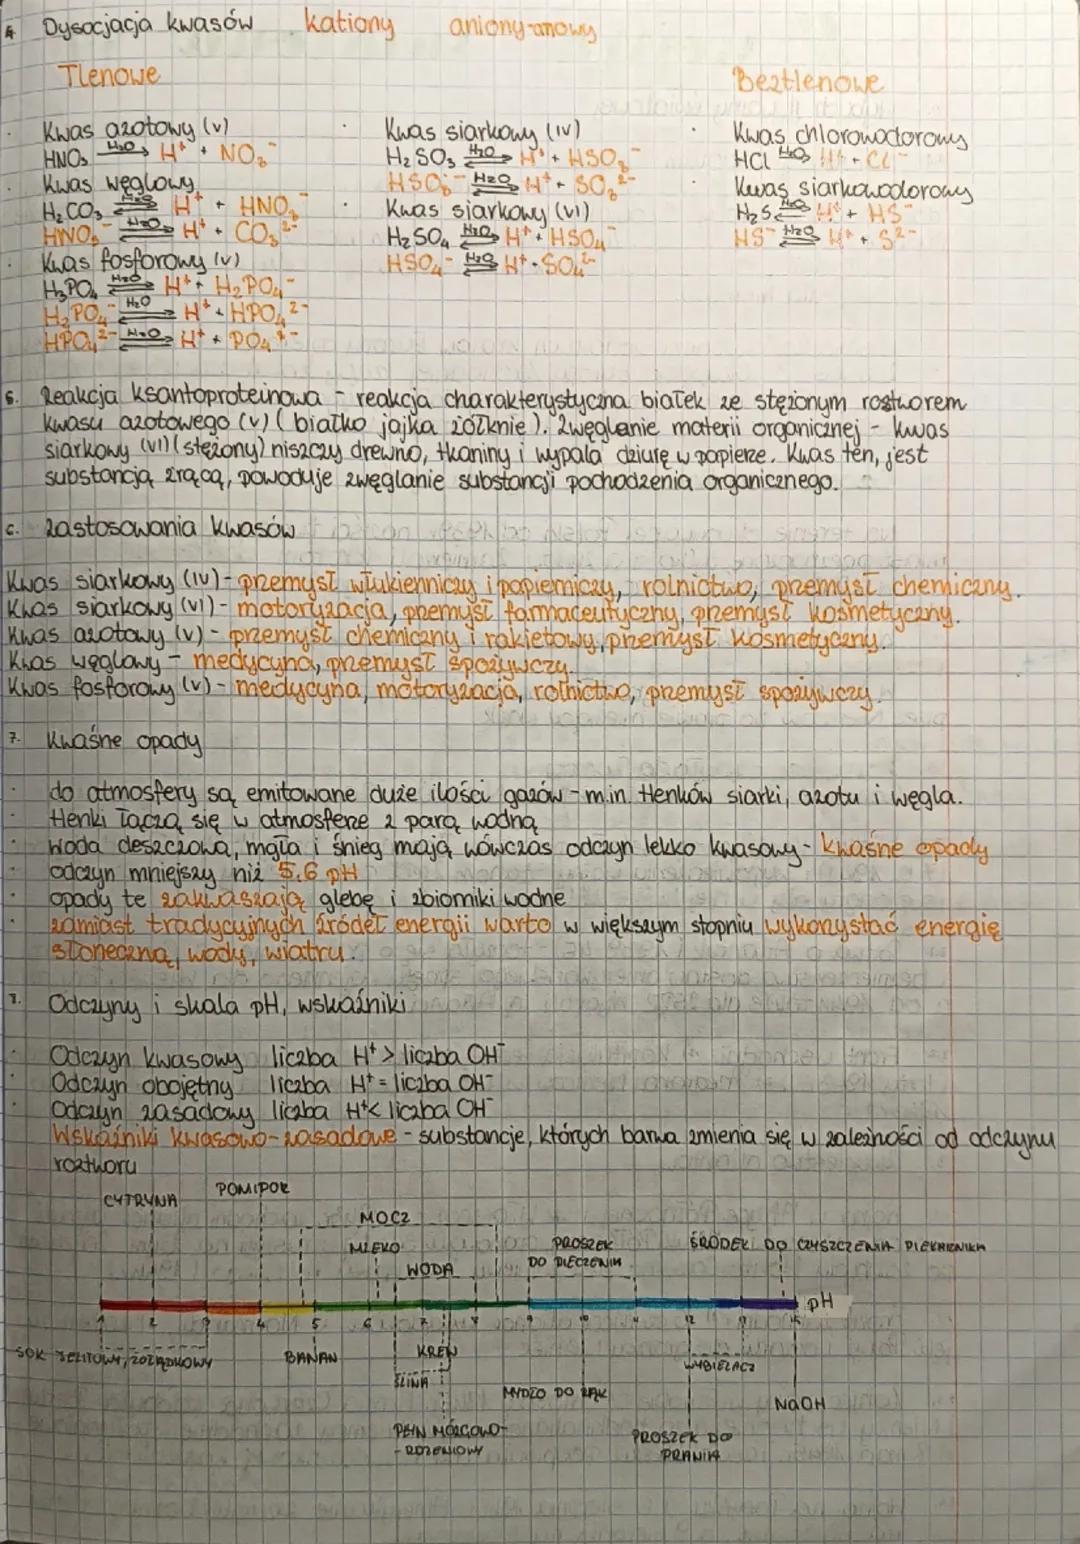 4. Dysocjacja kwasów kationy aniony
Tlenowe
Beztlenowe
Kwas azotowy (v)
HNO₃ H₂O→ H⁺ + NO₃⁻
Kwas węglowy
H₂CO₃ H₂O⇌ H⁺ + HNO₃⁻
HNO₃⁻ H₂O⇌ H⁺ + CO₃²⁻
Kwas fosforowy (v)
H₃PO₄ H₂O⇌ H⁺ + H₂PO₄⁻
H₂PO₄⁻ H₂O⇌ H⁺ + HPO₄²⁻
HPO₄²⁻ H₂O⇌ H⁺ + PO₄³⁻
Kwas siarkowy (IV)
H₂SO₃ H₂O⇌ H⁺ + HSO₃⁻
HSO₃⁻ H₂O⇌ H⁺ + SO₃²⁻
Kwas siarkowy (VI)
H₂SO₄ H₂O⇌ H⁺ + HSO₄⁻
HSO₄⁻ H₂O⇌ H⁺ + SO₄²⁻
Kwas chlorowodorowy
HCl H₂O→ H⁺ + Cl⁻
Kwas siarkowodorowy
H₂S H₂O⇌ H⁺ + HS⁻
HS⁻ H₂O⇌ H⁺ + S²⁻
5. Reakcja ksantoproteinowa - reakcja charakterystyczna białek ze stężonym roztworem
kwasu azotowego (v) (białko jajka żółknie). Zwęglanie materii organicznej - kwas
siarkowy (VI) (stężony) niszczy drewno, tkaniny i wypala dziurę w papierze. Kwas ten, jest
substancją żrącą, powoduje zwęglanie substancji pochodzenia organicznego.
6. Zastosowania kwasów
Kwas siarkowy (IV) - przemysł włukienniczy i papierniczy, rolnictwo, przemysł chemiczny.
Kwas siarkowy (VI) - motoryzacja, przemysł farmaceutyczny, przemysł kosmetyczny.
Kwas azotowy (v) - przemysł chemiczny i rakietowy, przemysł kosmetyczny.
Kwas węglowy - medycyna, przemysł spożywczy.
Kwas fosforowy (v) - medycyna, motoryzacja, rolnictwo, przemysł spożywczy.
7. Kwaśne opady
do atmosfery są emitowane duże ilości gazów - m.in. tlenków siarki, azotu i węgla.
tlenki łączą się w atmosferze z parą wodną
woda deszczowa, mgła i śnieg mają wówczas odczyn lekko kwasowy - kwaśne opady
odczyn mniejszy niż 5.6 pH
opady te zakwaszają glebę i zbiorniki wodne
zamiast tradycyjnych źródeł energii warto w większym stopniu wykorzystać energię
słoneczną, wody, wiatru.
Odczyny i skala pH, wskaźniki
Odczyn kwasowy liczba H⁺ > liczba OH⁻
Odczyn obojętny liczba H⁺ = liczba OH⁻
Odczyn zasadowy liczba H⁺ < liczba OH⁻
Wskaźniki kwasowo-zasadowe - substancje, których barwa zmienia się w zależności od odczynu
roztworu
CYTRYNA
POMIDOR
MOCZ
MLEKO
WODA
PROSZEK
DO PIECZENIA
ŚRODEK DO CZYSZCZENIA PIEKARNIKA
pH
1 2 3 4 5 6 7 8 9 10 11 12
SOK JELITOWY, ŻOŁĄDKOWY
BANAN
KREW
ŚLINA
WYBIELACZ
MYDŁO DO RĄK
NaOH
PŁYN MÓZGOWO-
-RDZENIOWY
PROSZEK DO
PRANIA